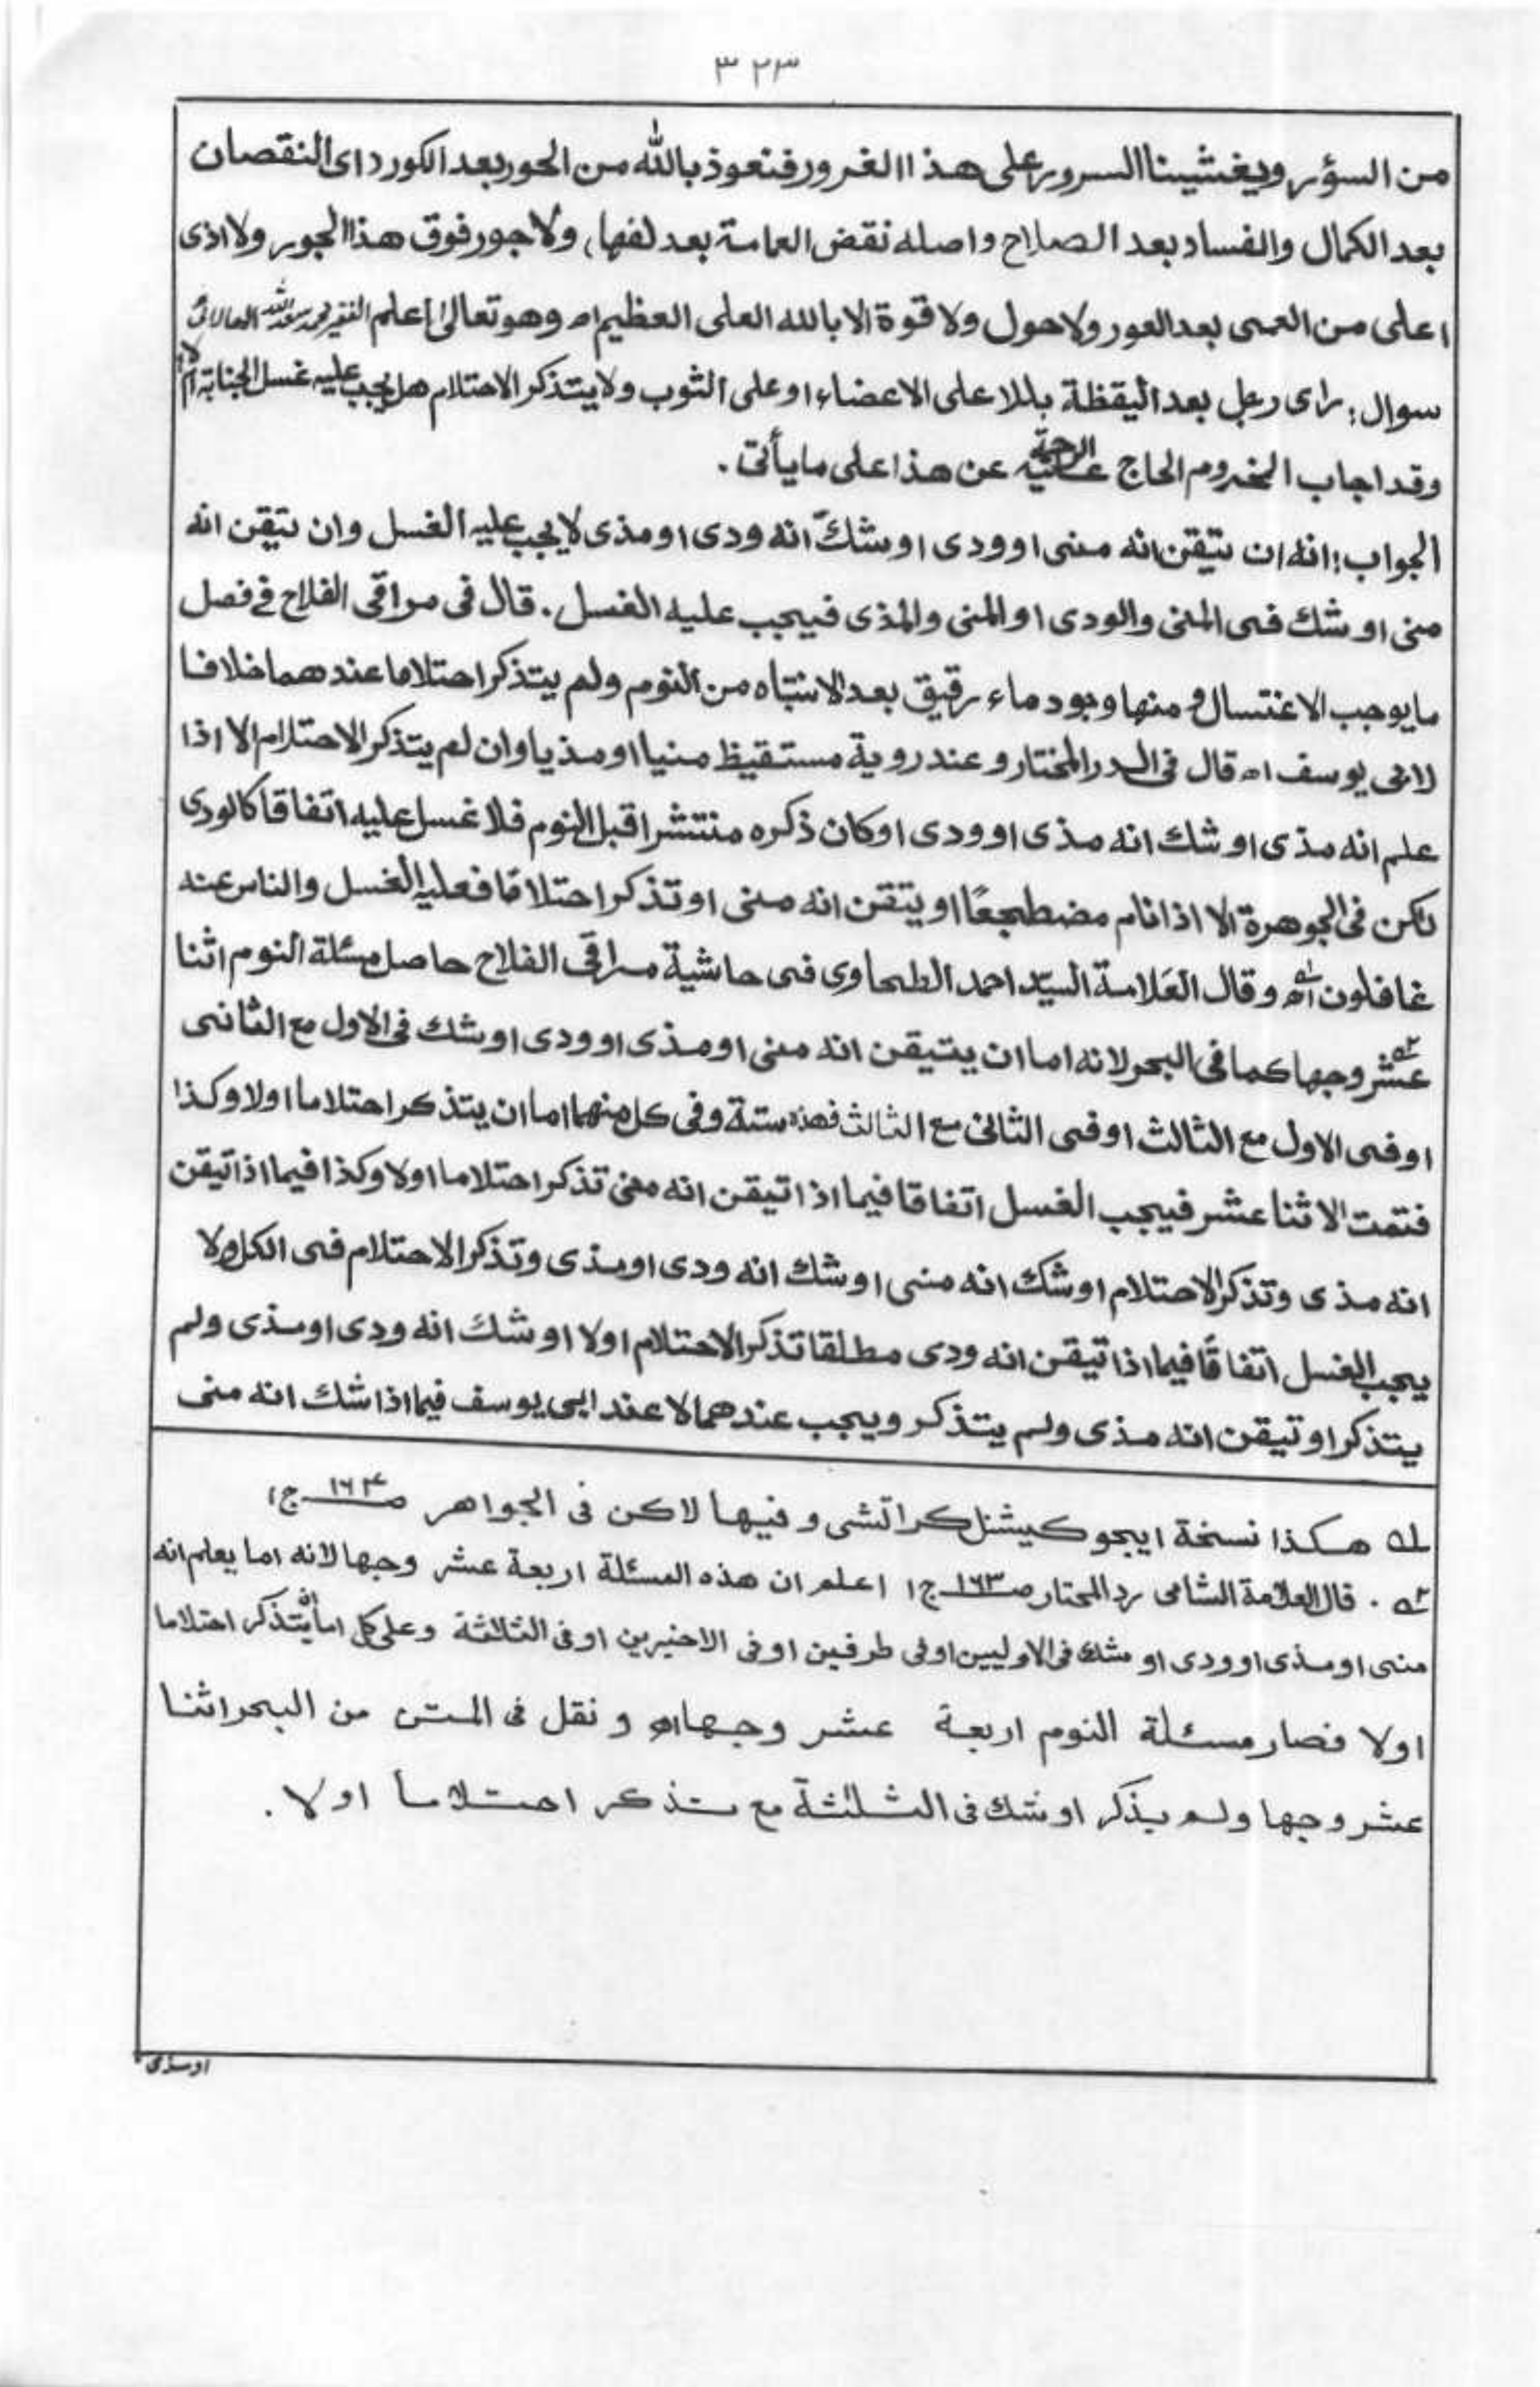 ٣٢٣
من السؤر ويغشينا السرور على هذا الغرور فنعوذ بالله من الحور بعد الكور (اى النقصان
بعد الكمال والفساد بعد الصلاح واصله نقض العمامة بعد لفها) ولا جور فوق هذا الجور ولا اذى
اعلى من العمى بعد العور ولا حول ولا قوة الا بالله العلى العظيم اه وهو تعالىٰ اعلم الفقير محمد سعد الله
سوال: راى رجل بعد اليقظة بللا على الاعضاء او على الثوب ولا يتذكر الاحتلام هل يجب عليه غسل الجنابة ام لا
وقد اجاب المخدوم الحاج عليه الرحمة عن هذا على ما يأتى .
الجواب: انه ان تيقن انه منى او ودى او شك انه ودى او مذى لا يجب عليه الغسل وان تيقن انه
منى او شك فى المنى والودى او المنى والمذى فيجب عليه الغسل . قال فى مراقى الفلاح فے فصل
ما يوجب الاغتسال و منها وجود ماء رقيق بعد الانتباه من النوم ولم يتذكر احتلاما عندهما خلافا
لابى يوسف اه قال فى الدر المختار و عند روية مستقيظ منيا او مذيا وان لم يتذكر الاحتلام الا اذا
علم انه مذى او شك انه مذى او ودى او كان ذكره منتشرا قبل النوم فلا غسل عليه اتفاقا كالودى
لكن فى الجوهرة الا اذا نام مضطجعًا او يتقن انه منى او تذكر احتلامًا فعليه الغسل والناس عنه
غافلون اه له وقال العلامة السيّد احمد الطحاوى فى حاشية مراقى الفلاح حاصل مسئلة النوم اثنا
عشر ٢ه وجها كما فى البحر لانه اما ان يتيقن انه منى او مذى او ودى او شك فى الاول مع الثانى
او فى الاول مع الثالث او فى الثانى مع الثالث فهذه ستة وفى كل منهما اما ان يتذكر احتلاما اولا وكذا
فتمت الاثنا عشر فيجب الغسل اتفاقا فيما اذا تيقن انه منى تذكر احتلاما اولا وكذا فيما اذا تيقن
انه مذى وتذكر الاحتلام او شك انه منى او شك انه ودى او مذى وتذكر الاحتلام فى الكل ولا
يجب الغسل اتفاقًا فيما اذا تيقن انه ودى مطلقا تذكر الاحتلام اولا او شك انه ودى او مذى ولم
يتذكر او تيقن انه مذى ولم يتذكر ويجب عندهما لا عند ابى يوسف فيما اذا شك انه منى
له هكذا نسخة ايجوكيشنل كراتشى و فيها لاكن فى الجواهر صـ ١٦٤ ج١
٢ه . قال العلامة الشامى رد المحتار صـ ١٦٣ ج١ اعلم ان هذه المسئلة اربعة عشر وجها لانه اما يعلم انه
منى او مذى او ودى او شك فى الاوليين او فى طرفين او فى الاخيرين او فى الثلثة وعلى كل اما ان يتذكر احتلاما
اولا فصار مسئلة النوم اربعة عشر وجها اه و نقل فى المتن من البحر اثنا
عشر وجها ولم يذكر او شك فى الثلثة مع تذكر احتلاما اولا .
او مذى